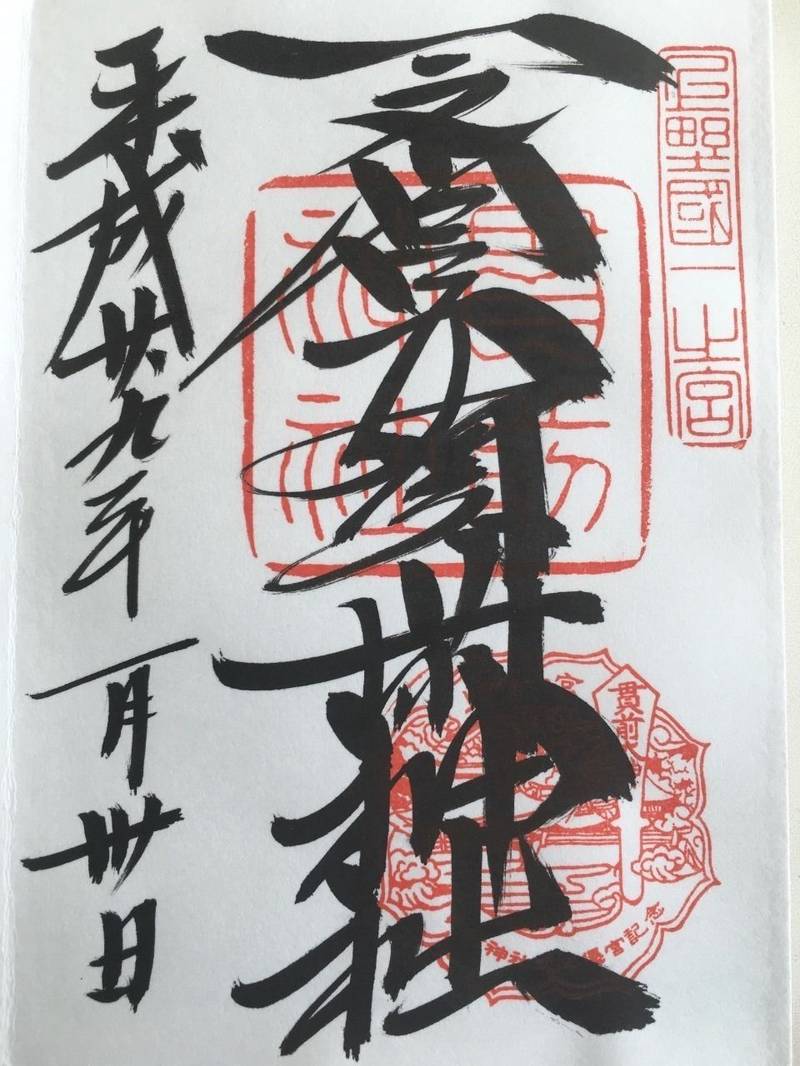 上野國一之宮
一之宮貫前神社
貫前
神社
貫前
神社
宮記念
平成廿九年一月卅日